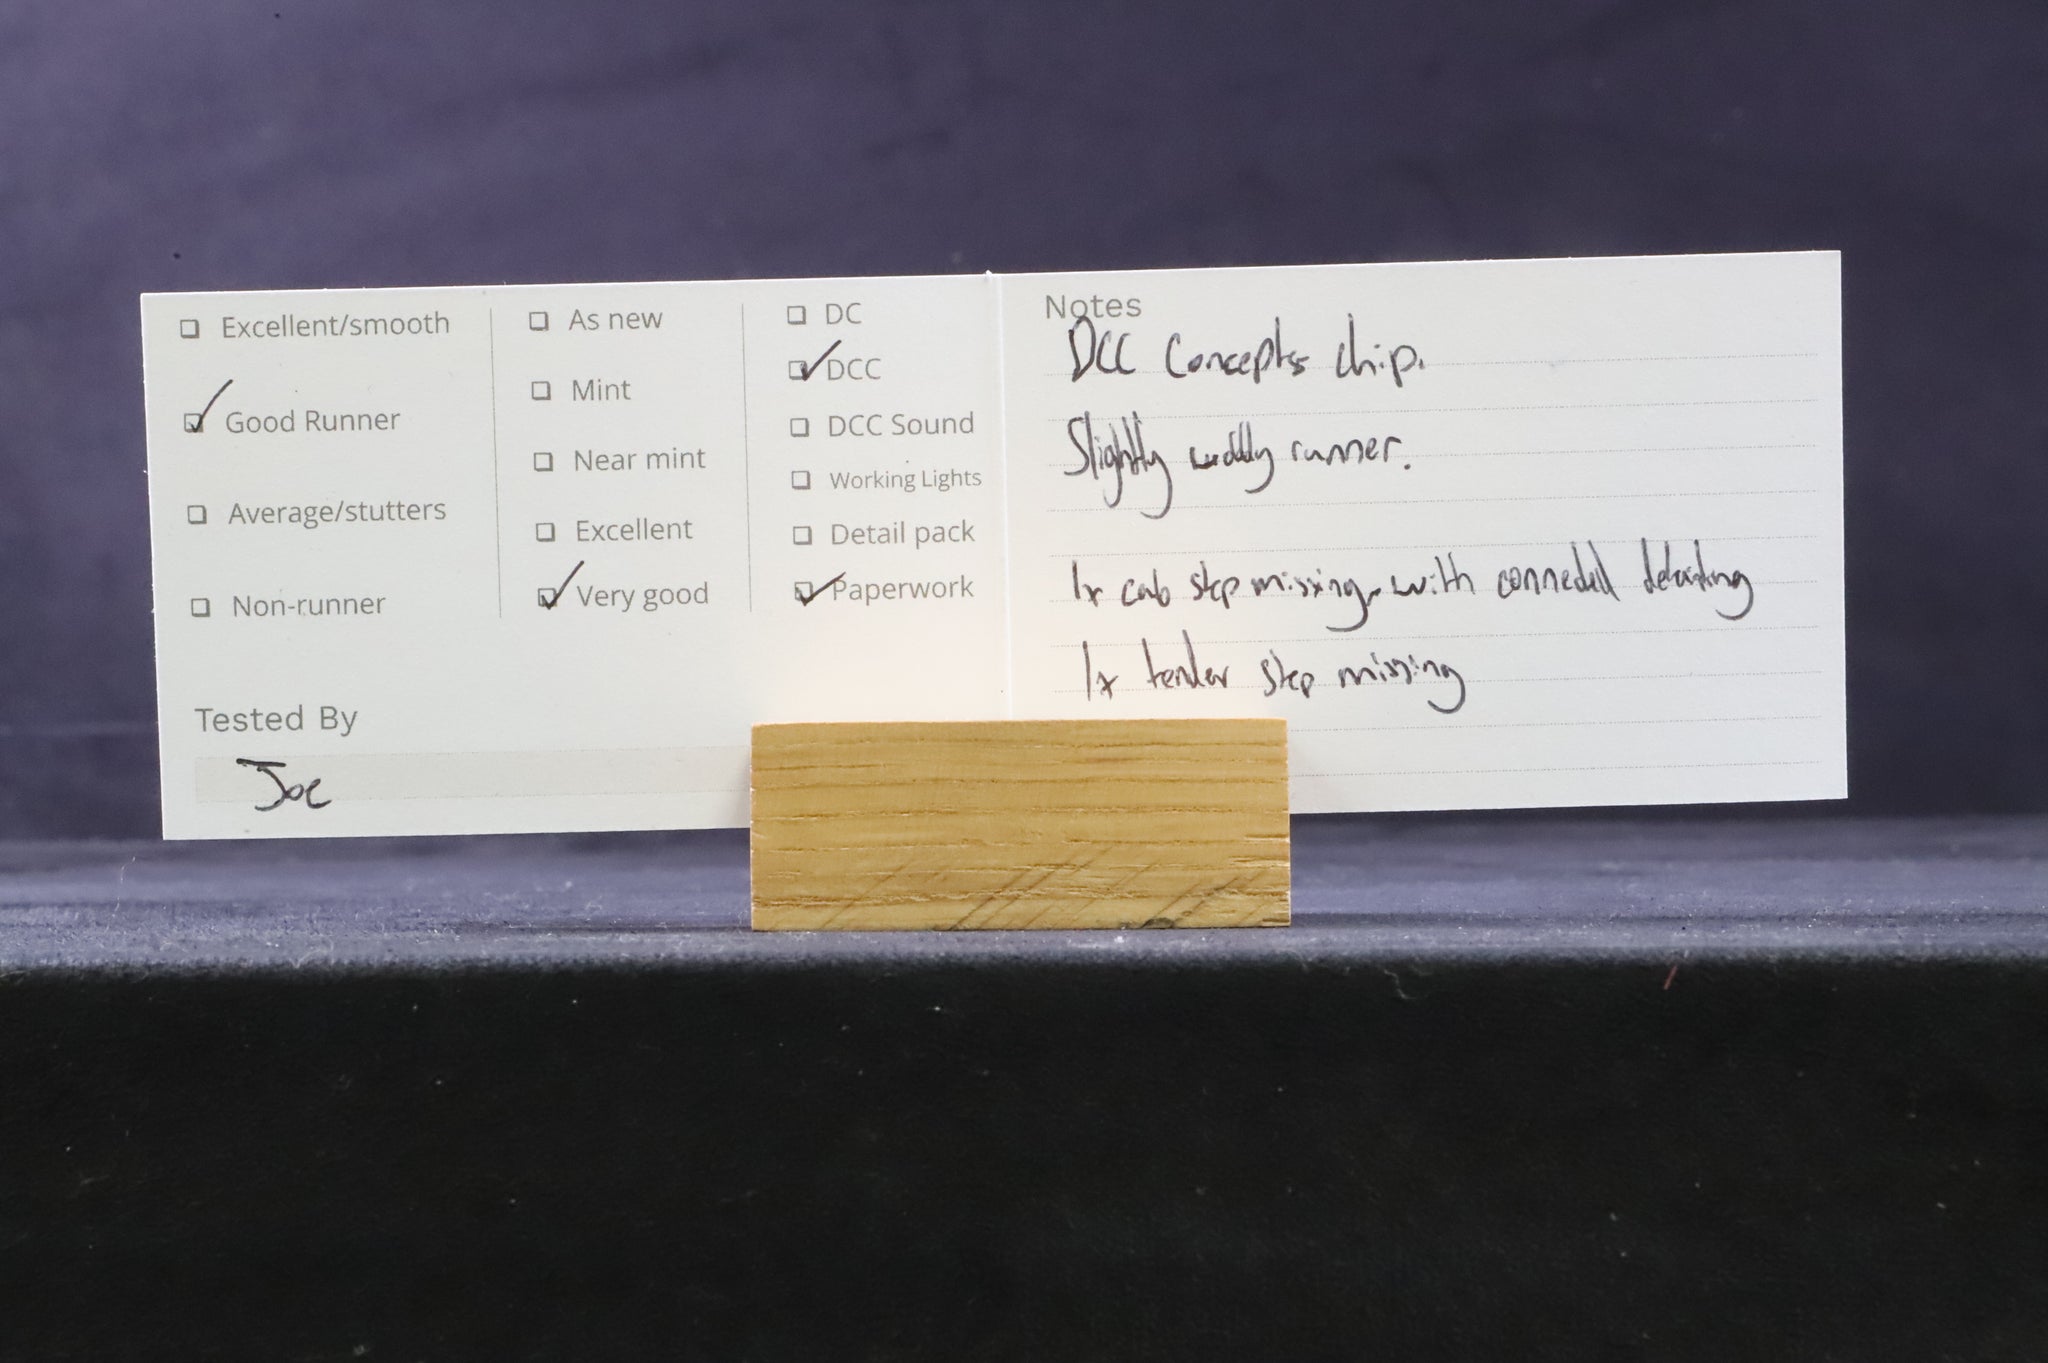 Excellent/smooth
Good Runner
Average/stutters
Non-runner
As new
Mint
Near mint
Excellent
Very good
DC
DCC
DCC Sound
Working Lights
Detail pack
Paperwork
Tested By
Joe
Notes
DCC Concepts chip.
Slightly runner.
1x cab step missing with detailing
1x tender step missing